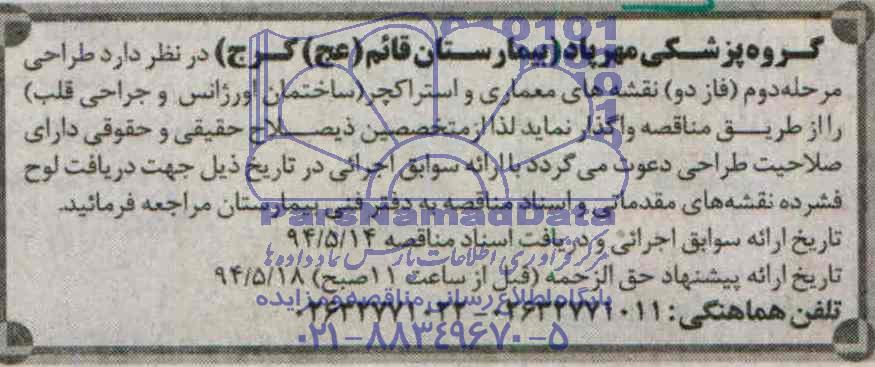 گروه پزشکی مهرپاد (بیمارستان قائم (عج) کرج) در نظر دارد طراحی
مرحله دوم (فاز دو) نقشه های معماری و استراکچر (ساختمان اورژانس و جراحی قلب)
را از طریق مناقصه واگذار نماید لذا از متخصصین ذیصلاح حقیقی و حقوقی دارای
صلاحیت طراحی دعوت می گردد با ارائه سوابق اجرائی در تاریخ ذیل جهت دریافت لوح
فشرده نقشه‌های مقدماتی و اسناد مناقصه به دفتر فنی بیمارستان مراجعه فرمائید.
تاریخ ارائه سوابق اجرائی و دریافت اسناد مناقصه ۹۴/۵/۱۴
تاریخ ارائه پیشنهاد حق الزحمه (قبل از ساعت ۱۱ صبح) ۹۴/۵/۱۸
تلفن هماهنگی: ۰۲۶۳۲۷۷۱۰۱۱ - ۰۲۶۳۲۷۷۱۰۲۲
ParsNamadData
مرکز فرآوری اطلاعات پارس نماد داده ها
پایگاه اطلاع رسانی مناقصه و مزایده
۰۲۱-۸۸۳۴۹۶۷۰-۵